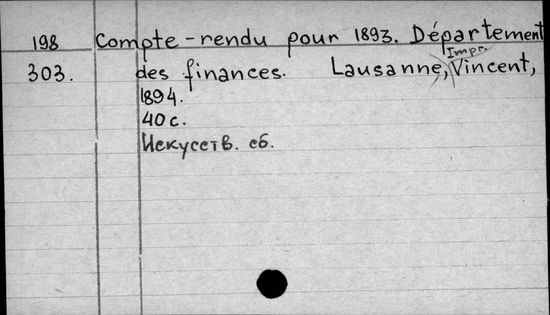 198 Compte-rendu pour 1893. Département
Impr.
303. des finances. Lausanne, Vincent,
1894.
40 c.
Искусств. сб.